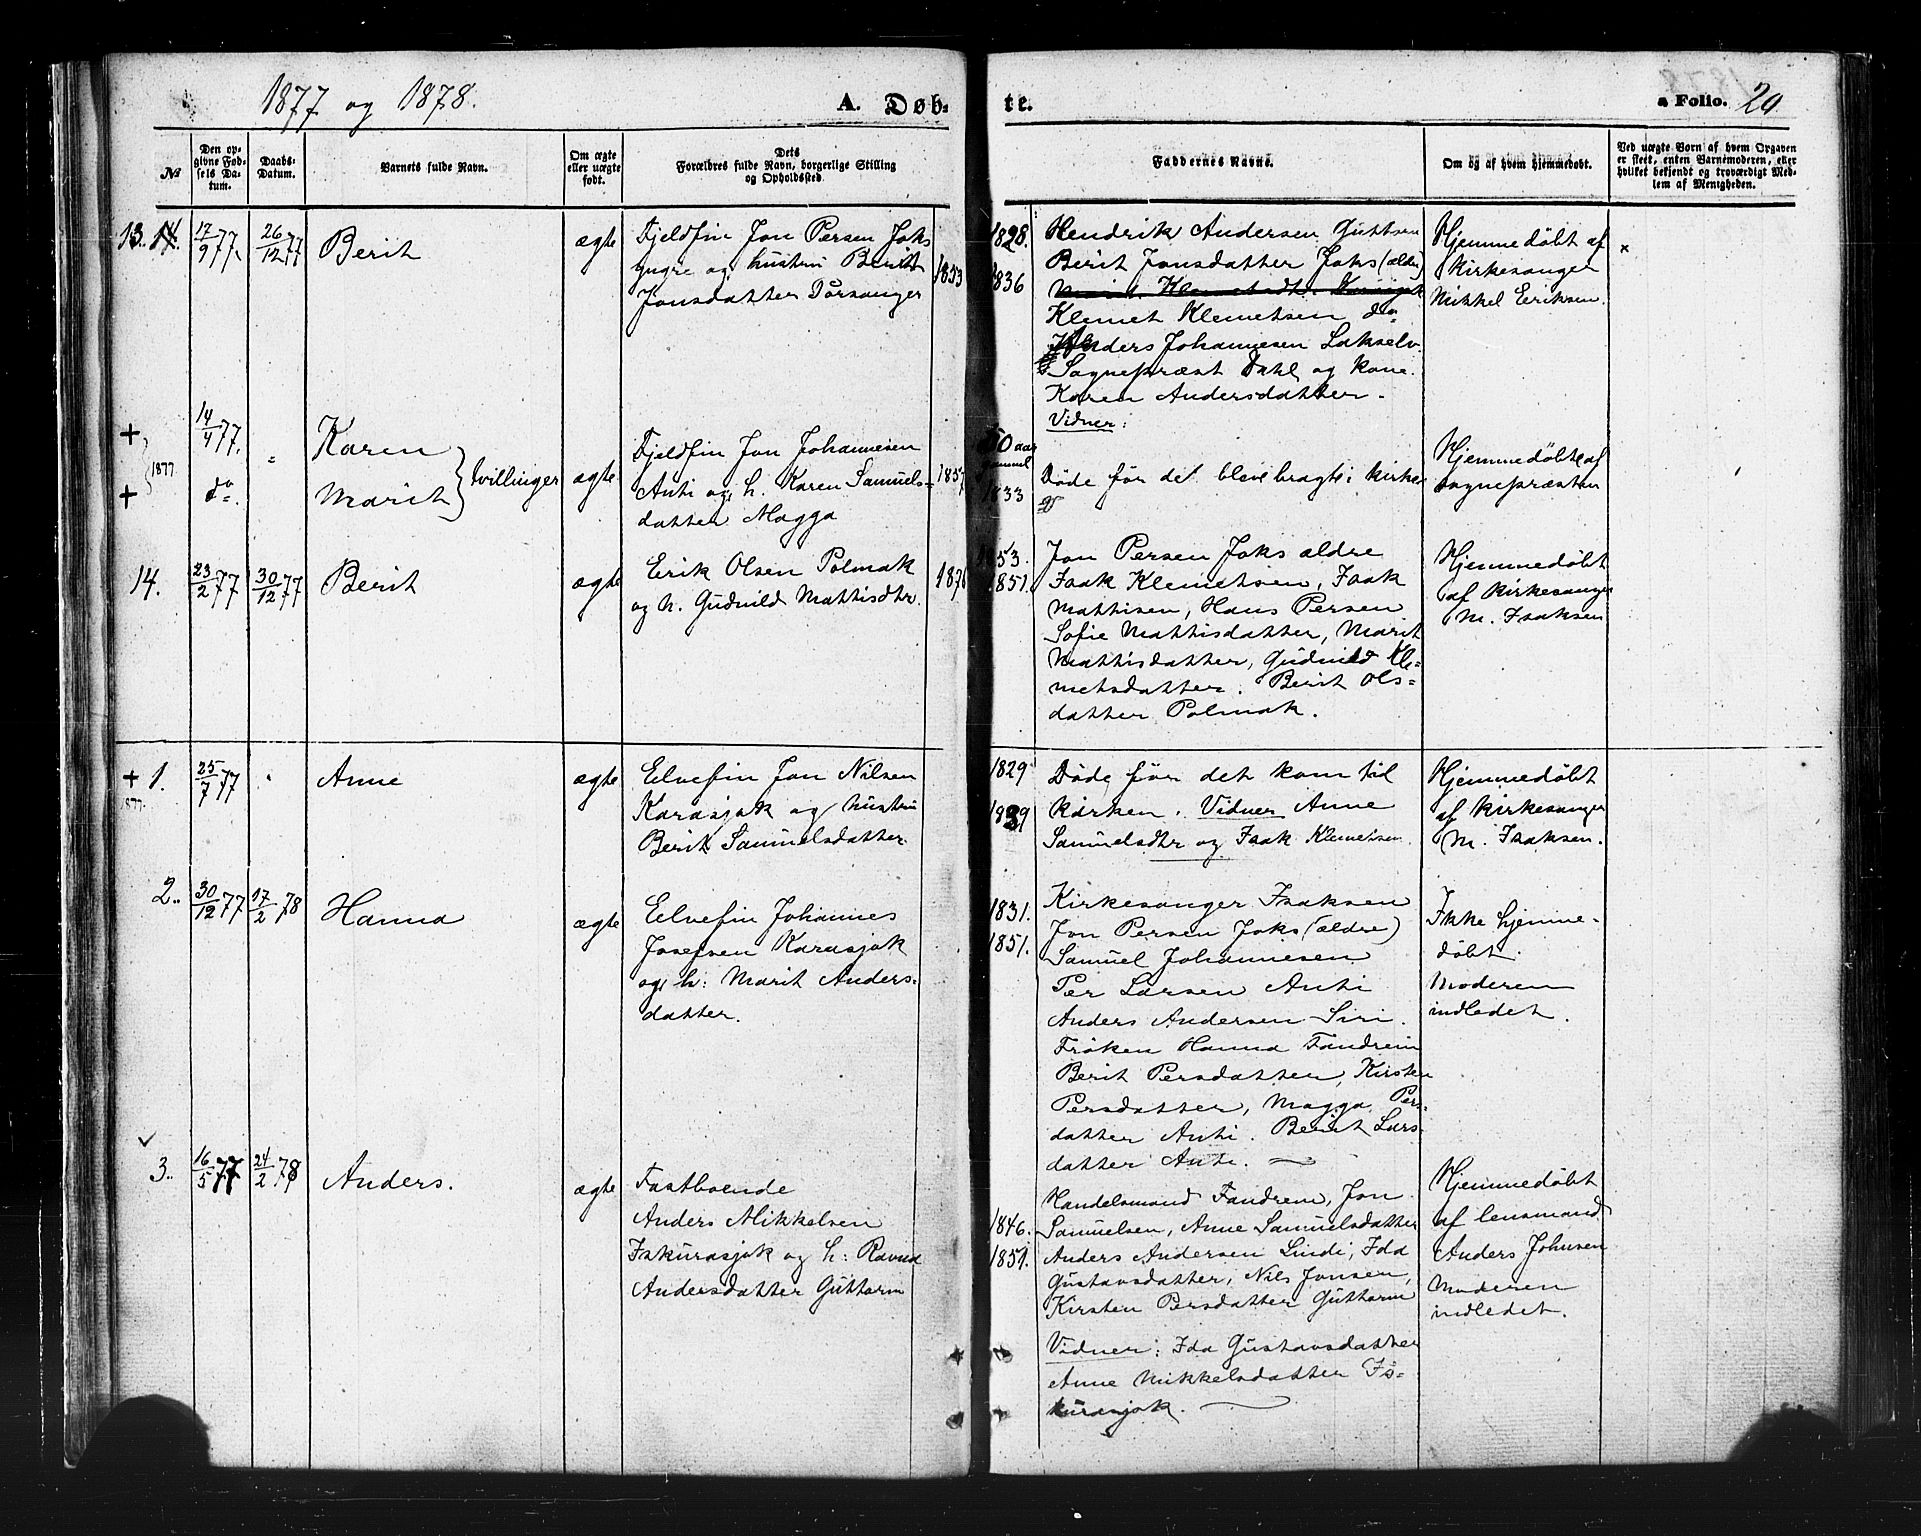 1877 og 1878.
A. Døb-
te.
a Folio. 20
№
Den op-
givne Fød-
sels Da-
tum.
Daabs-
Datum.
Barnets fulde Navn.
Om ægte
eller uægte
født.
Dets
Forældres fulde Navn, borgerlige Stilling
og Opholdssted.
Faddernes Navne.
Om og af hvem hjemmedøbt.
Ved uægte Børn af hvem Opgaven
er skeet, enten Barnemoderen, eller
hvilket bekjendt og troværdigt Med-
lem af Menigheden.
13. 14.
17/9 77.
26/12 77
Berit
ægte
Fjeldfin Jon Persen Joks
yngre og hustru Berit
Jonsdatter Porsanger
1853
1828.
1836
Hendrik Andersen Guttsen
Berit Jonsdatter Joks (ældre)
Klemet Klemetsen do
Anders Johannesen Lakselv.
Sognepræst Dahl og kone.
Karen Andersdatter.
Vidner:
Hjemmedøbt af
kirkesanger
Mikkel Eriksen.
×
+
+
1877
14/4 77.
do
Karen
Marit
tvillinger
ægte
Fjeldfin Jon Johannesen
Anti og h. Karen Samuels-
datter Magga
1857
50 aar
gammel
1833
Døde før de bleve bragte i kirken
Hjemmedøbte af
sognepræsten
14.
23/2 77
30/12 77
Berit
ægte
Erik Olsen Polmak
og h. Gudnild Mattisdtr.
187
1853.
1851.
Jon Persen Joks ældre
Isak Klemetsen, Isak
Mattisen, Hans Persen
Sofie Mattisdatter, Marit
Mattisdatter, Gudnild Kle-
metsdatter. Berit Ols-
datter Polmak.
Hjemmedøbt
af kirkesanger
M. Isaksen
+ 1.
877.
25/7 77
Anne
ægte
Elvefin Jon Nilsen
Karasjok og hustru
Berit Samuelsdatter
1829
1839
Døde før det kom til
kirken. Vidner Anne
Samuelsdtr og Isak Klemetsen.
Hjemmedøbt
af kirkesanger
M. Isaksen.
2.
30/12 77
17/2 78
Hanna
ægte
Elvefin Johannes
Josefsen Karasjok
og h: Marit Anders-
datter.
1831.
1851.
Kirkesanger Isaksen
Jon Persen Joks (ældre)
Samuel Johannesen
Per Larsen Anti
Anders Andersen Siri.
Frøken Hanna Fandrem
Berit Persdatter, Kirsten
Persdatter, Magga Pers-
datter Anti. Berit Lars-
datter Anti.
Ikke hjemme-
døbt.
Moderen
indledet.
3.
16/5 77
24/2 78
Anders.
ægte
Fastboende
Anders Mikkelsen
Iskurasjok og h: Ravna
Andersdatter Guttorm
1846.
1851.
Handelsmand Fandrem, Jon
Samuelsen, Anne Samuelsdatter
Anders Andersen Lindi, Ida
Gustavsdatter, Nils Jonsen,
Kirsten Persdatter Guttorm
Vidner: Ida Gustavsdatter
Anne Mikkelsdatter Is-
kurasjok.
Hjemmedøbt
af lensmand
Anders Johnsen
Moderen
indledet.